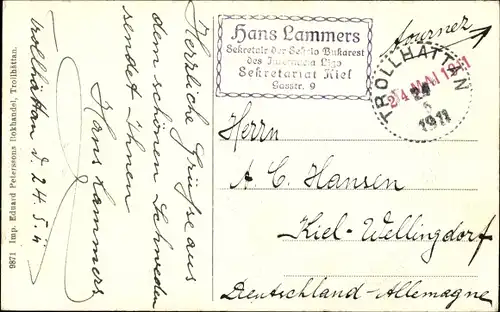 Herrliche Grüße aus
dem schönen Schweden
sendet Ihnen
Hans Lammers
Trollhättan d. 24.5.11
9871 Imp. Eduard Peterssons Bokhandel, Trollhättan.
Hans Lammers
Sekretair der Sektio Bukarest
des
Sekretariat Kiel
Gasstr. 9
tourner
TROLLHÄTTAN
24
5
1911
24 MAI 1911
Herrn
A. C. Hansen
Kiel-Wellingdorf
Deutschland-Allemagne